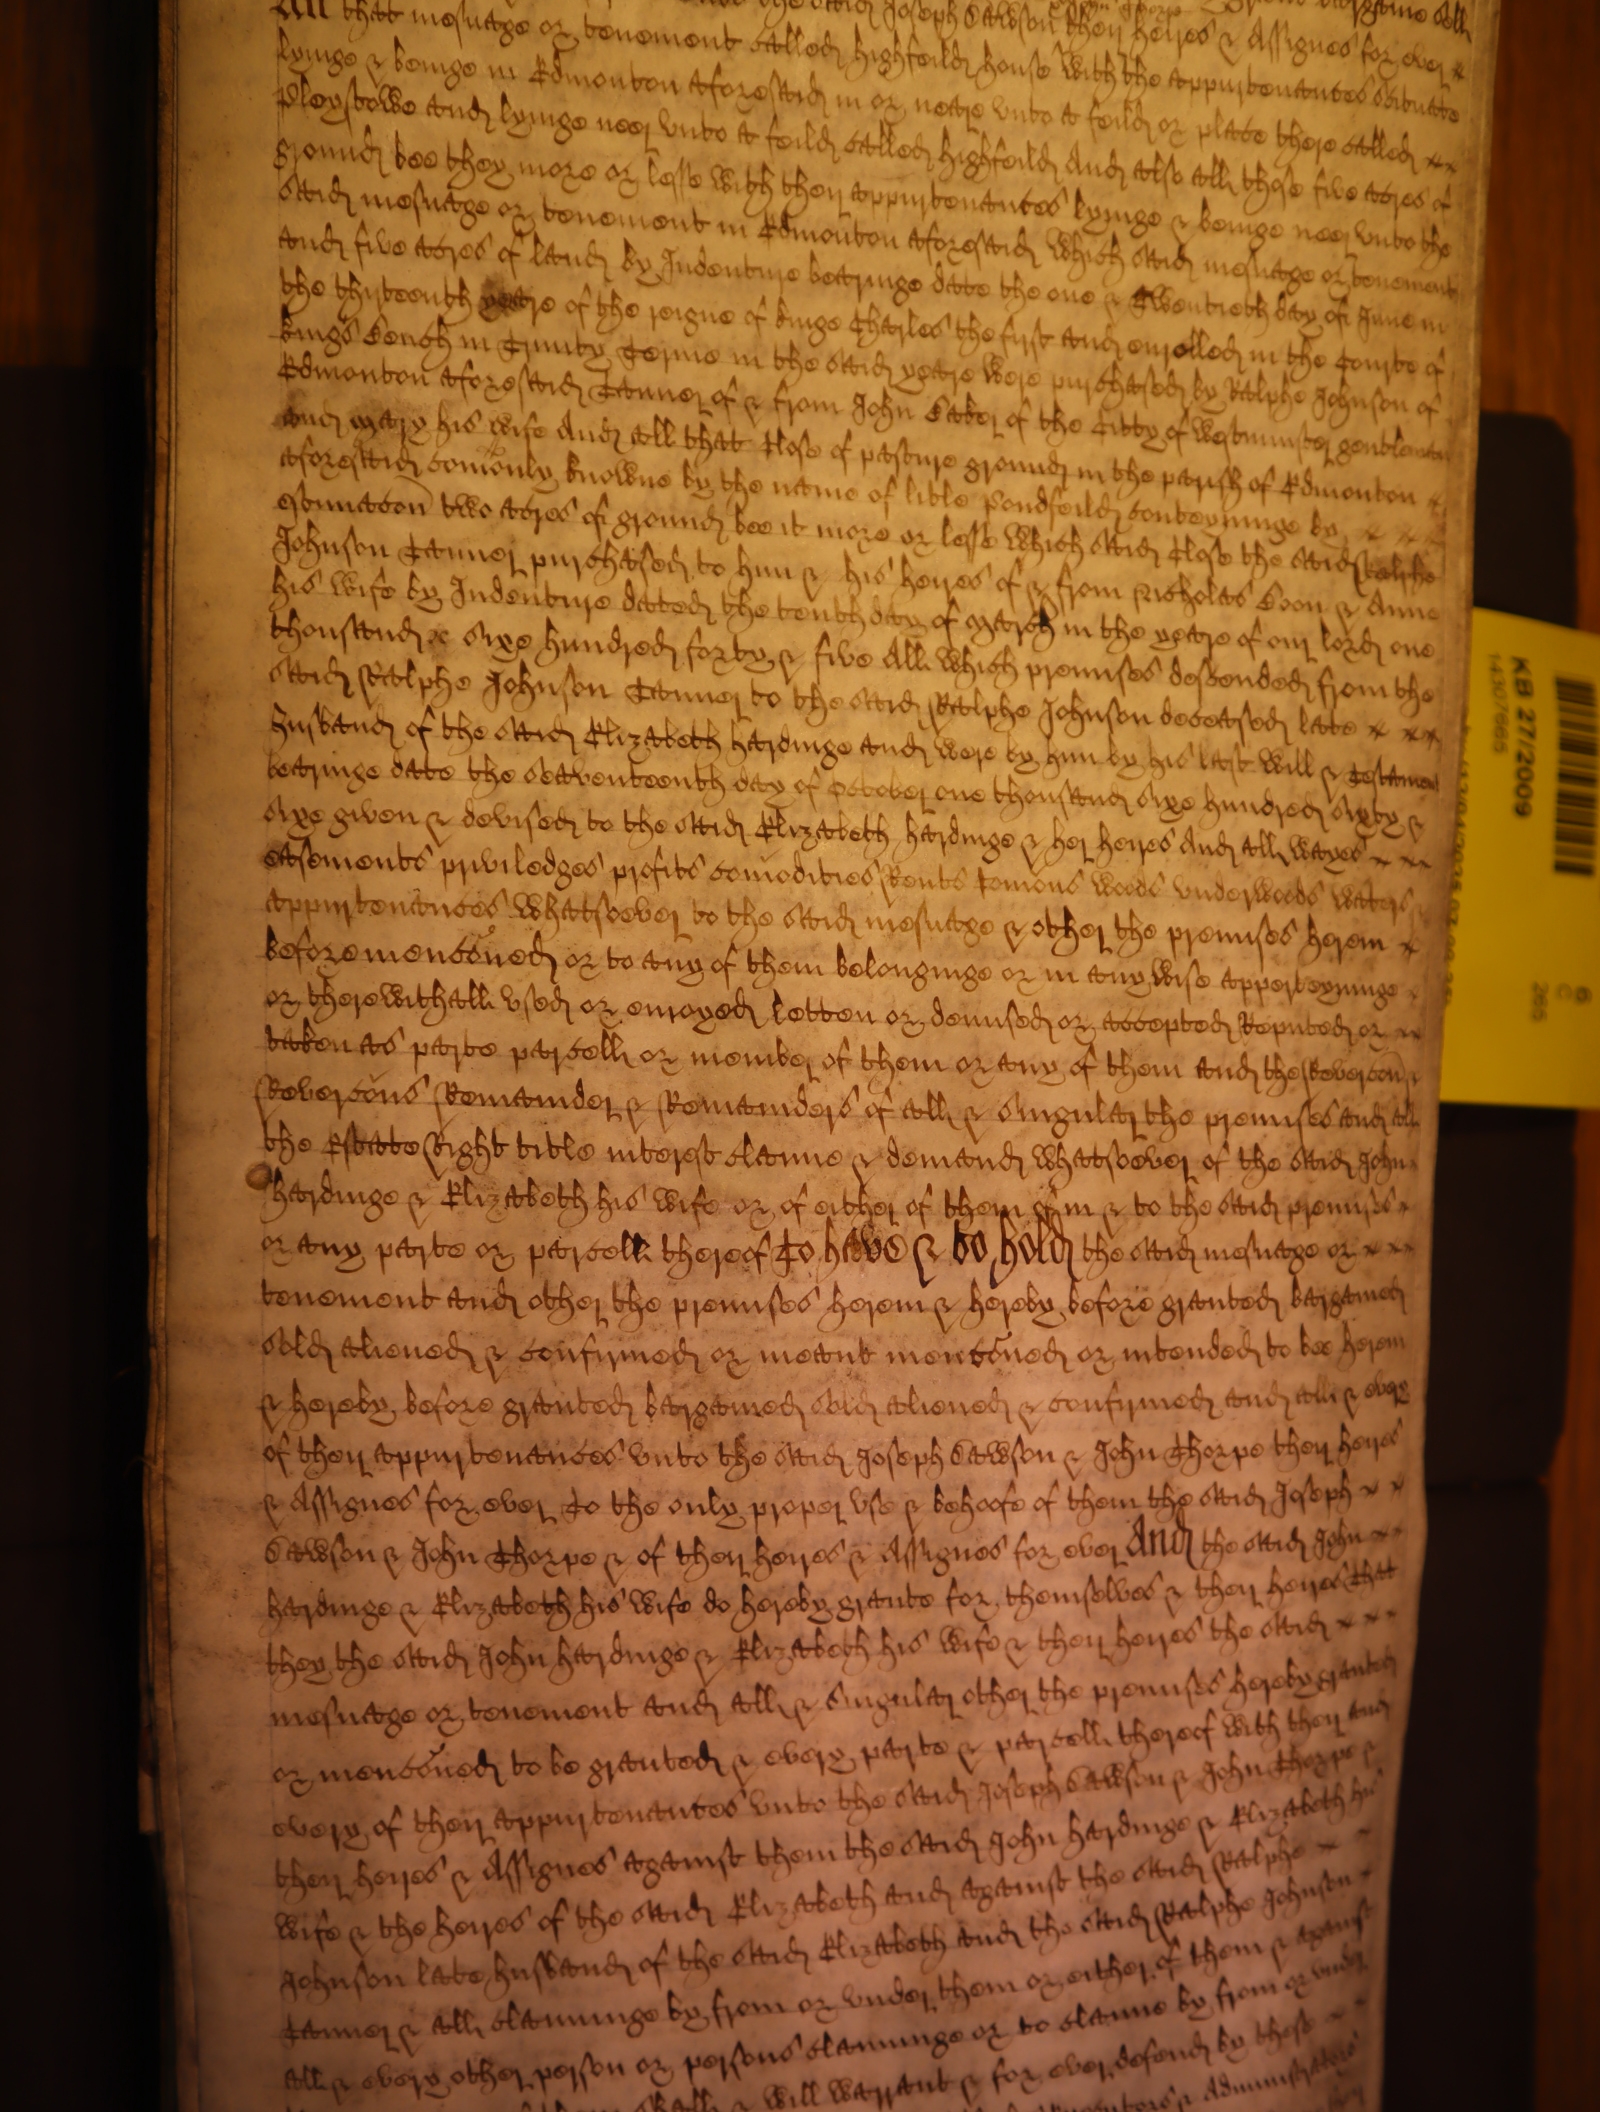 the said Joseph Sawson
All that mesuage or tenement called highfeild house with the appurtenances scituate
lyinge & beinge in Edmonton aforesaid in or neare unto a feild or place there called
Pleystowe and lyinge neer unto a feild called highfeild And also all those five acres of
ground bee they more or lesse with their appurtenances lyinge & beinge neer unto the
said mesuage or tenement in Edmonton aforesaid Which said mesuage or tenement
and five acres of land by Indenture bearinge date the one & Twentieth day of June in
the thirteenth yeare of the reigne of kinge Charles the first and enrolled in the Courte of
kings bench in Trinity Terme in the said yeare were purchased by Ralphe Johnson of
Edmonton aforesaid Tanner of & from John Baker of the Citty of Westminster gentleman
and Mary his wife And all that Close of pasture ground in the parish of Edmonton
aforesaid comonly knowne by the name of litle Pondfeild conteyninge by
estimacon two acres of ground bee it more or lesse Which said Close the said Ralphe
Johnson Tanner purchased to him & his heires of & from Nicholas Boon & Anne
his wife by Indenture dated the tenth day of March in the yeare of our lord one
thousand sixe hundred forty & five All which premises descended from the
said Ralphe Johnson Tanner to the said Ralphe Johnson deceased late
husband of the said Elizabeth hardinge and were by him by his last Will & Testament
bearinge date the seaventeenth day of October one thousand sixe hundred sixty &
sixe given & devised to the said Elizabeth hardinge & her heires And all wayes
easements priviledges profits comodities Rents Comons woods underwoods waters
appurtenances whatsoever to the said mesuage & other the premises herein
before menconed or to any of them belonginge or in any wise apperteyninge
or therewithall used or enioyed letten or demised or accepted Reputed or
taken as parte parcell or member of them or any of them and the Revercon &
Revercons Remainder & Remainders of all & singular the premises and all
the Estate Right title interest claime & demand whatsoever of the said John
hardinge & Elizabeth his wife or of either of them of in & to the said premises
or any parte or parcell thereof To have & to hold the said mesuage or
tenement and other the premises herein & hereby before granted bargained
sold aliened & confirmed or meant menconed or intended to bee herein
& hereby before granted bargained sold aliened & confirmed and all & every
of their appurtenances unto the said Joseph Sawson & John Thorpe their heires
& Assignes for ever To the only proper use & behoofe of them the said Joseph
Sawson & John Thorpe & of their heires & Assignes for ever And the said John
hardinge & Elizabeth his wife do hereby grante for themselves & their heires That
they the said John hardinge & Elizabeth his wife & their heires the said
mesuage or tenement and all & singular other the premises hereby granted
or menconed to be granted & every parte & parcell thereof with their and
every of their appurtenances unto the said Joseph Sawson & John Thorpe &
their heires & Assignes against them the said John hardinge & Elizabeth his
wife & the heires of the said Elizabeth and against the said Ralphe
Johnson late husband of the said Elizabeth and the said Ralphe Johnson
Tanner & all claiminge by from or under them or either of them & against
all & every other person or persons claiminge or to claime by from or under
will warrant & for ever defend by these
Administrators
KB 27/2009
14307665